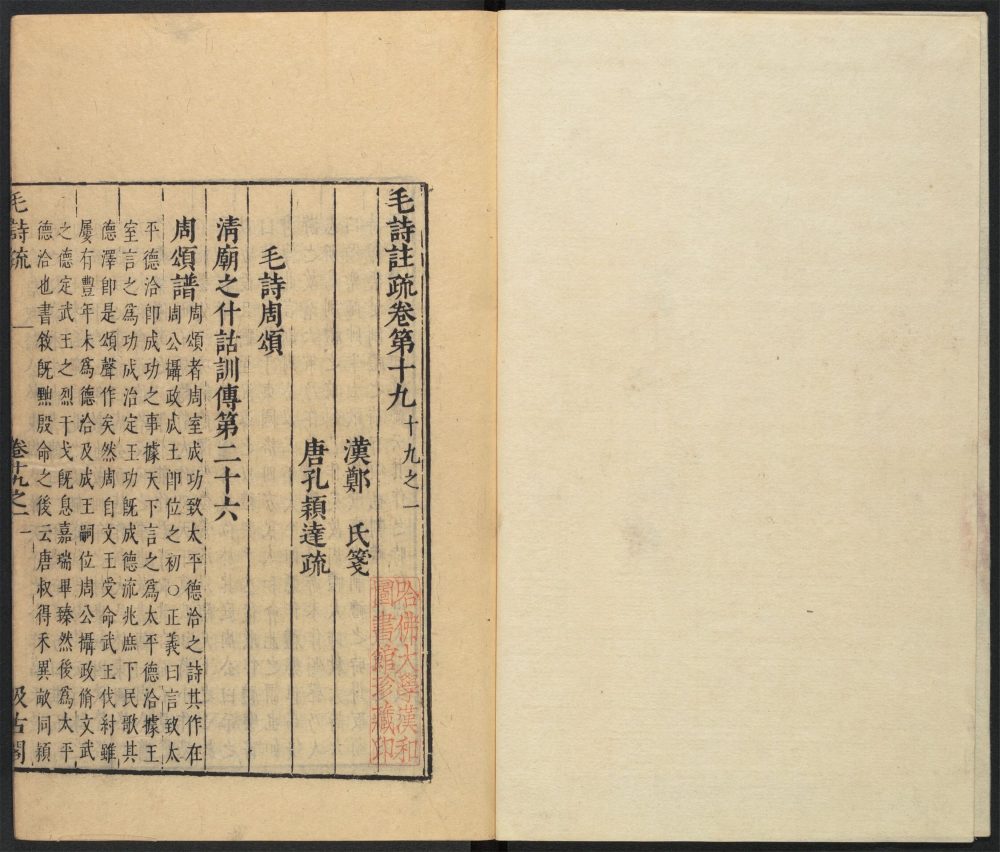 毛詩註疏卷第十九 十九之一
漢鄭 氏箋
唐孔穎達疏
毛詩周頌
清廟之什詁訓傳第二十六
周頌譜 周頌者周室成功致太平德洽之詩其作在
周公攝政成王卽位之初○正義曰言致太
平德洽卽成功之事據天下言之爲太平德洽據王
室言之爲功成治定王功旣成德流兆庶下民歌其
德澤卽是頌聲作矣然周自文王受命武王伐紂雖
屢有豐年未爲德洽及成王嗣位周公攝政脩文武
之德定武王之烈干戈旣息嘉瑞畢臻然後爲太平
德洽也書敘旣黜殷命之後云唐叔得禾異畝同穎
毛詩疏 卷十九之一 一 汲古閣
哈佛大學漢和
圖書館珍藏印